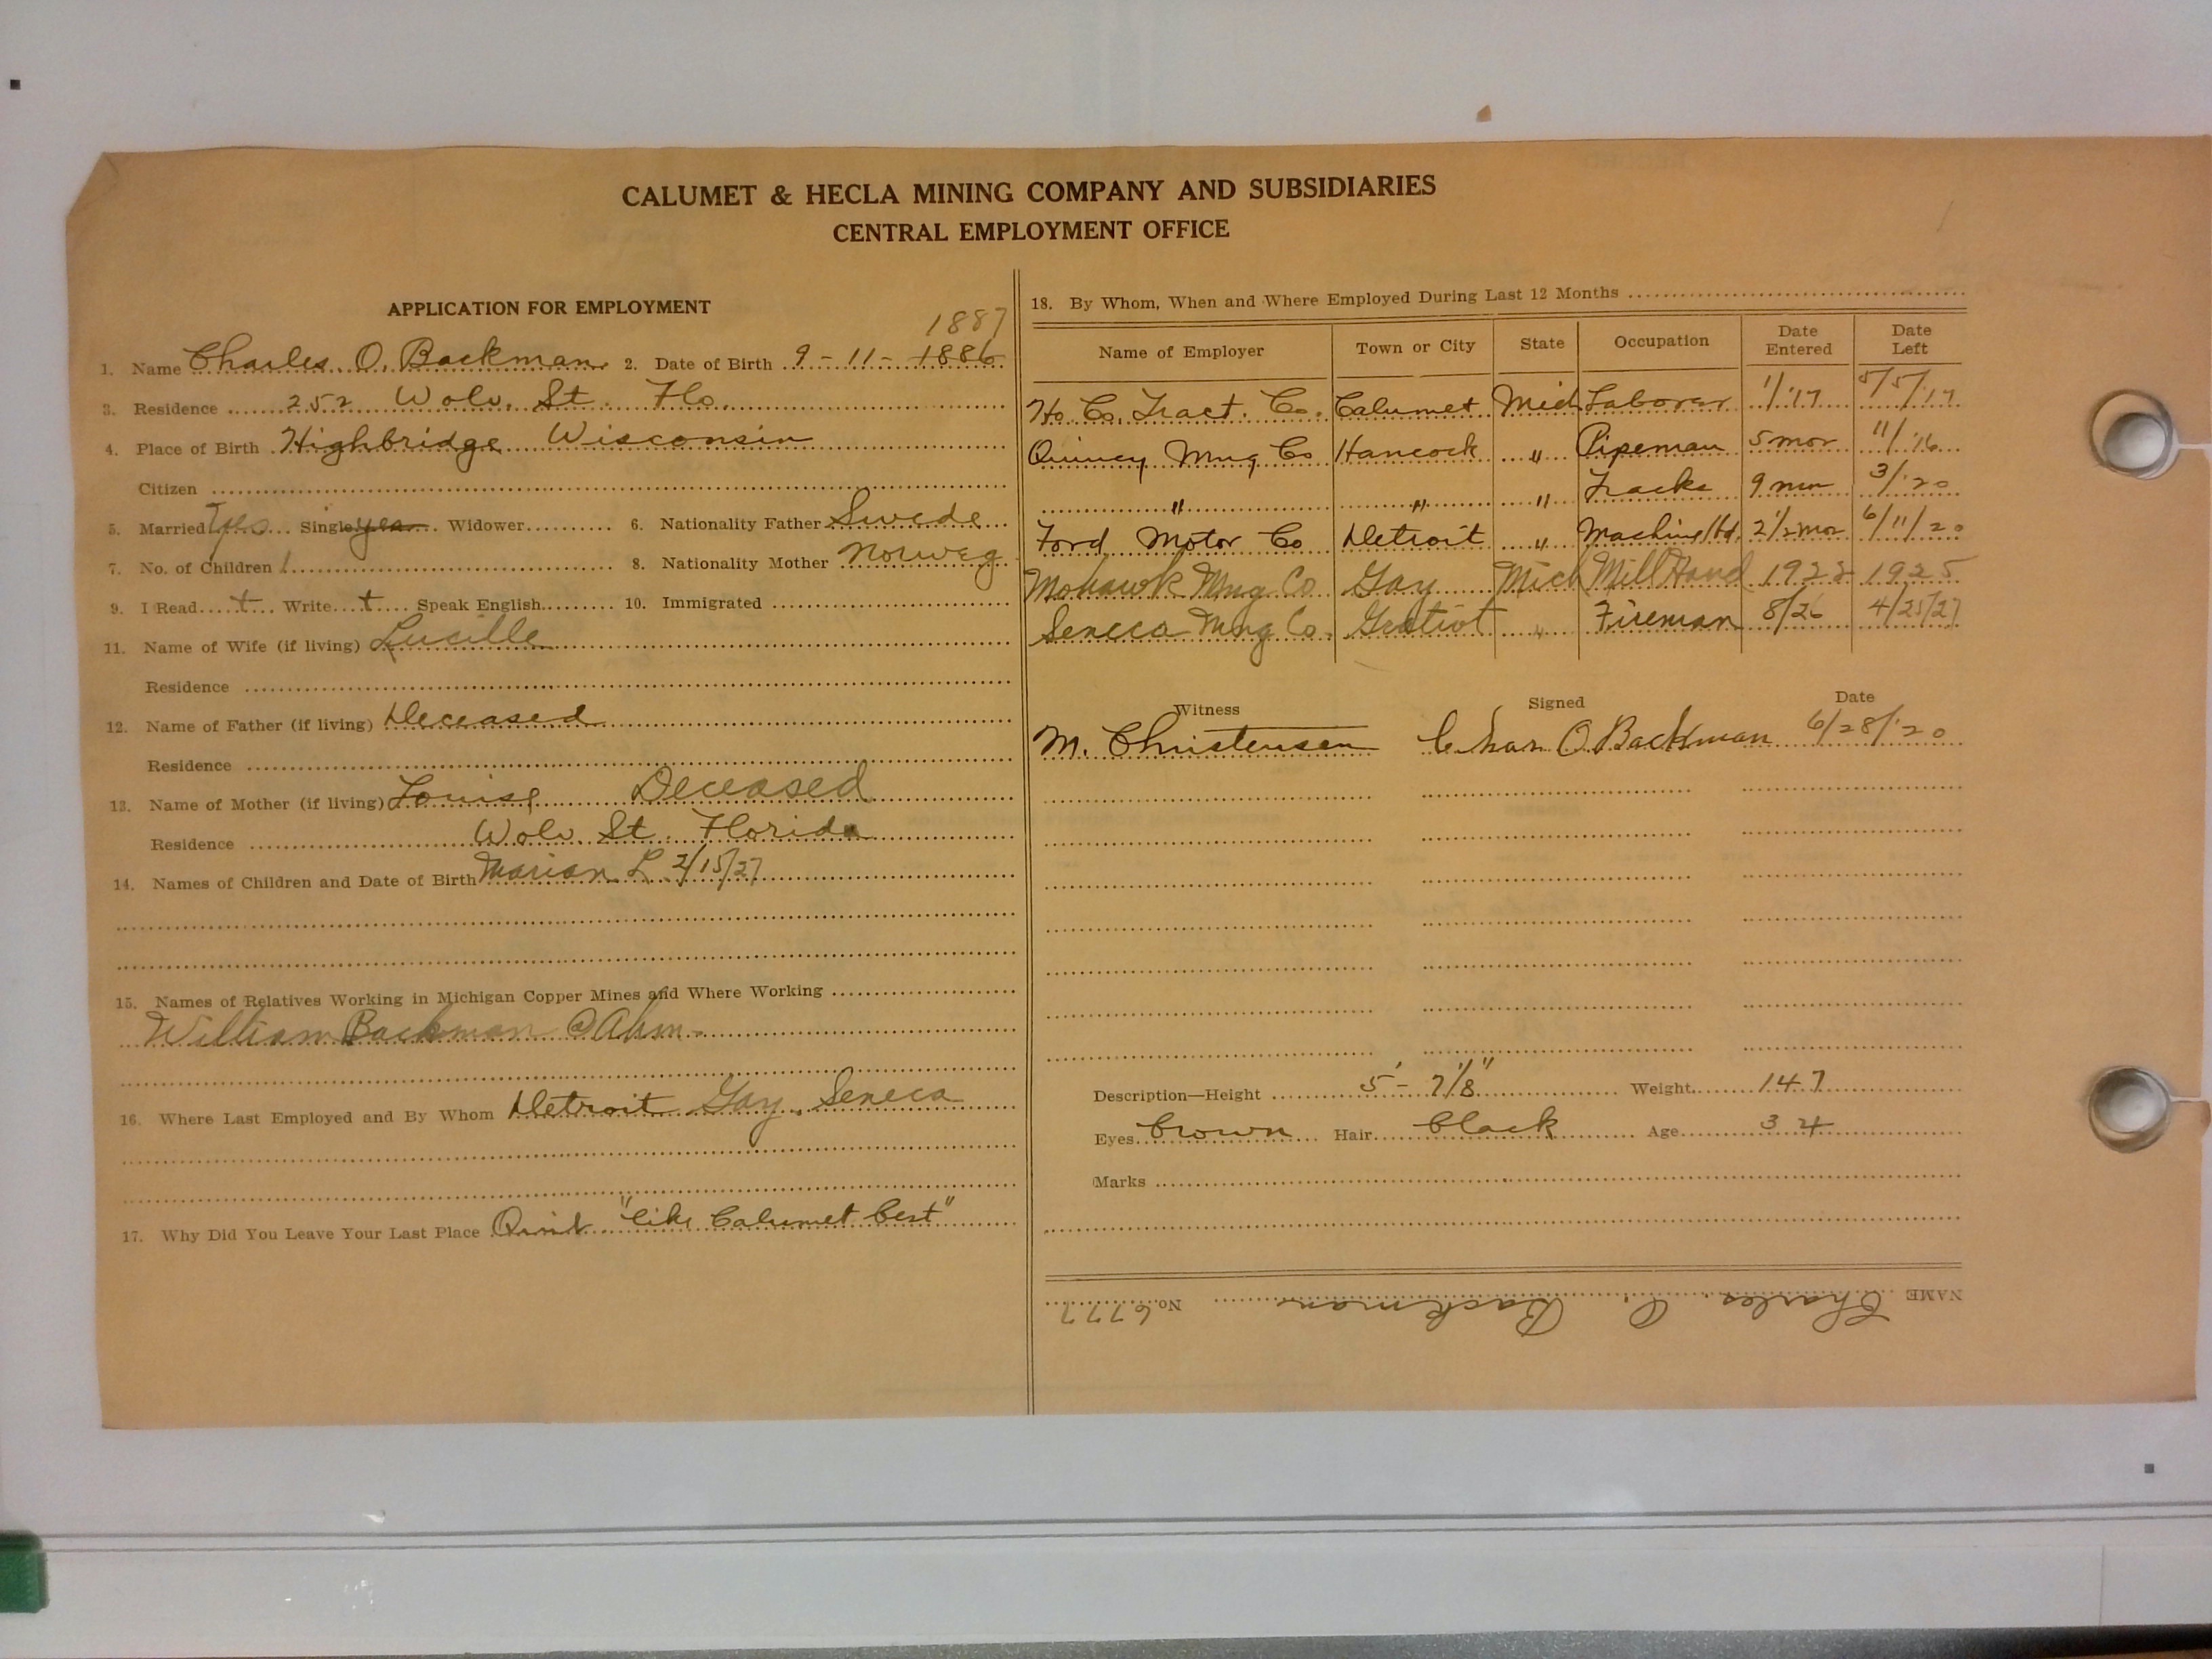 CALUMET & HECLA MINING COMPANY AND SUBSIDIARIES
CENTRAL EMPLOYMENT OFFICE
APPLICATION FOR EMPLOYMENT
1887
1. Name Charles. O. Backman 2. Date of Birth 9 - 11 - 1886
3. Residence 252 Wolv. St. Flo.
4. Place of Birth Highbridge Wisconsin
Citizen
5. Married Yes Single yes Widower 6. Nationality Father Swede
7. No. of Children 1 8. Nationality Mother Norweg
9. I Read + Write + Speak English 10. Immigrated
11. Name of Wife (if living) Lucille
Residence
12. Name of Father (if living) Deceased
Residence
13. Name of Mother (if living) Louise Deceased
Residence Wolv. St. Florida
14. Names of Children and Date of Birth Marian L 2/15/27
15. Names of Relatives Working in Michigan Copper Mines and Where Working
William Backman @ Ahm.
16. Where Last Employed and By Whom Detroit Gay. Seneca
17. Why Did You Leave Your Last Place Quit "like Calumet best"
18. By Whom, When and Where Employed During Last 12 Months
Name of Employer Town or City State Occupation Date Entered Date Left
Ho. Co. Tract. Co. Calumet Mich Laborer 1/'17 5/5/17
Quincy Mng Co Hancock " Pipeman 5 mos 11/'16
" " " Tracks 9 mos 3/'20
Ford Motor Co Detroit " Machine Hd. 2 1/2 mos 6/11/20
Mohawk Mng Co Gay Mich Mill Hand 1922 1925
Seneca Mng Co. Gratiot " Fireman 8/26 4/25/27
Witness Signed Date
M. Christensen Chas. O. Backman 6/28/'20
Description—Height 5' - 7 1/8" Weight 147
Eyes brown Hair black Age 34
Marks
NAME Charles O. Backman No. 6777